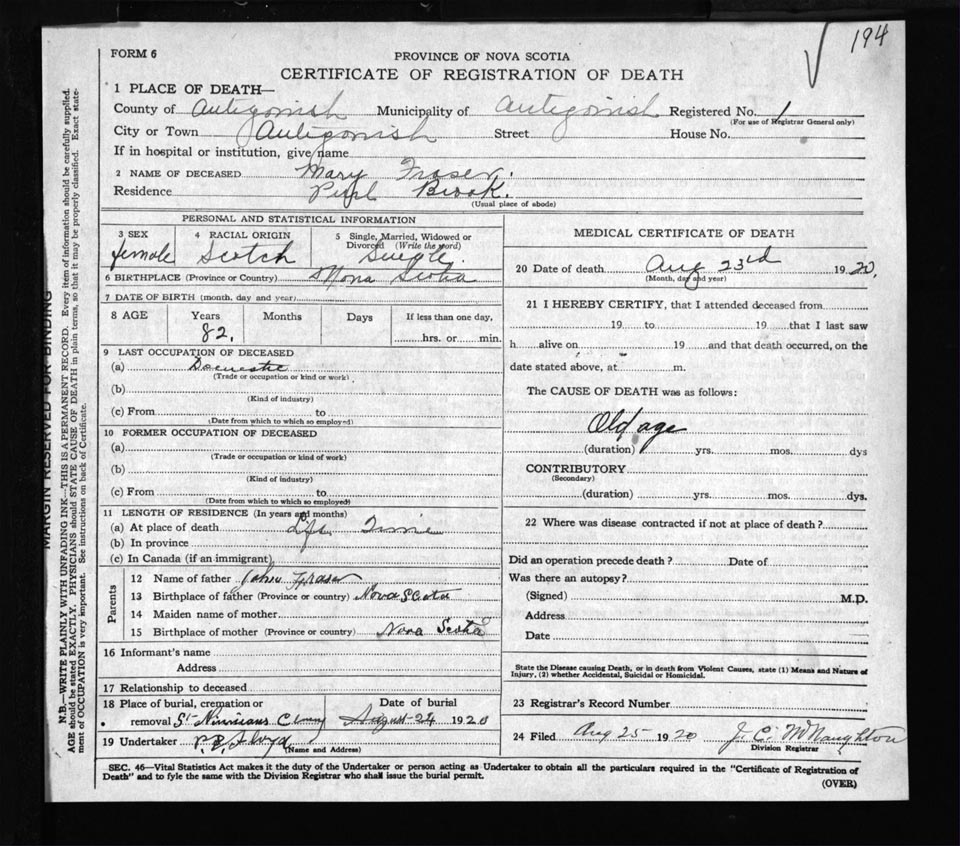 194
FORM 6
PROVINCE OF NOVA SCOTIA
CERTIFICATE OF REGISTRATION OF DEATH
1 PLACE OF DEATH—
County of Antigonish Municipality of Antigonish Registered No. 1
(For use of Registrar General only)
City or Town Antigonish Street House No.
If in hospital or institution, give name
2 NAME OF DECEASED Mary Fraser.
Residence Brook.
(Usual place of abode)
PERSONAL AND STATISTICAL INFORMATION
3 SEX 4 RACIAL ORIGIN 5 Single, Married, Widowed or Divorced (Write the word)
female Scotch Single.
6 BIRTHPLACE (Province or Country) Nova Scotia
7 DATE OF BIRTH (month, day and year)
8 AGE Years Months Days If less than one day,
82. hrs. or min.
9 LAST OCCUPATION OF DECEASED
(a) Domestic
(Trade or occupation or kind or work)
(b)
(Kind of industry)
(c) From to
(Date from which to which so employed)
10 FORMER OCCUPATION OF DECEASED
(a)
(Trade or occupation or kind of work)
(b)
(Kind of industry)
(c) From to
(Date from which to which so employed)
11 LENGTH OF RESIDENCE (In years and months)
(a) At place of death Life Time
(b) In province
(c) In Canada (if an immigrant)
Parents
12 Name of father John Fraser
13 Birthplace of father (Province or country) Nova Scotia
14 Maiden name of mother
15 Birthplace of mother (Province or country) Nova Scotia
16 Informant's name
Address
17 Relationship to deceased
18 Place of burial, cremation or Date of burial
removal St Ninnians August 24 1920
19 Undertaker
(Name and Address)
MEDICAL CERTIFICATE OF DEATH
20 Date of death Aug 23rd 1920.
(Month, day and year)
21 I HEREBY CERTIFY, that I attended deceased from
19 to 19 that I last saw
h alive on 19 and that death occurred, on the
date stated above, at m.
The CAUSE OF DEATH was as follows:
Old age
(duration) yrs. mos. dys
CONTRIBUTORY
(Secondary)
(duration) yrs. mos. dys.
22 Where was disease contracted if not at place of death?
Did an operation precede death? Date of
Was there an autopsy?
(Signed) M.D.
Address
Date
State the Disease causing Death, or in death from Violent Causes, state (1) Means and Nature of
Injury, (2) whether Accidental, Suicidal or Homicidal.
23 Registrar's Record Number
24 Filed Aug 25 1920 J. C. McNaughton
Division Registrar
SEC. 46—Vital Statistics Act makes it the duty of the Undertaker or person acting as Undertaker to obtain all the particulars required in the "Certificate of Registration of
Death" and to fyle the same with the Division Registrar who shall issue the burial permit.
(OVER)
MARGIN RESERVED FOR BINDING
N.B.—WRITE PLAINLY WITH UNFADING INK—THIS IS A PERMANENT RECORD. Every item of information should be carefully supplied.
AGE should be stated EXACTLY. PHYSICIANS should STATE CAUSE OF DEATH in plain terms, so that it may be properly classified. Exact state-
ment of OCCUPATION is very important. See instructions on back of Certificate.